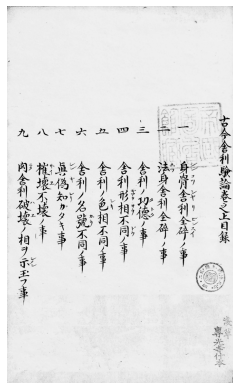 古今舎利験論巻之上目録
一 身骨舎利全砕ノ事
二 法身舎利全砕ノ事
三 舎利ノ功徳ノ事
四 舎利形相不同ノ事
五 舎利ノ色相不同ノ事
六 舎利ノ名號不同ノ事
七 真偽知カタキ事
八 摧壊不壊ノ事
九 肉舎利破壊ノ相ヲ示玉フ事